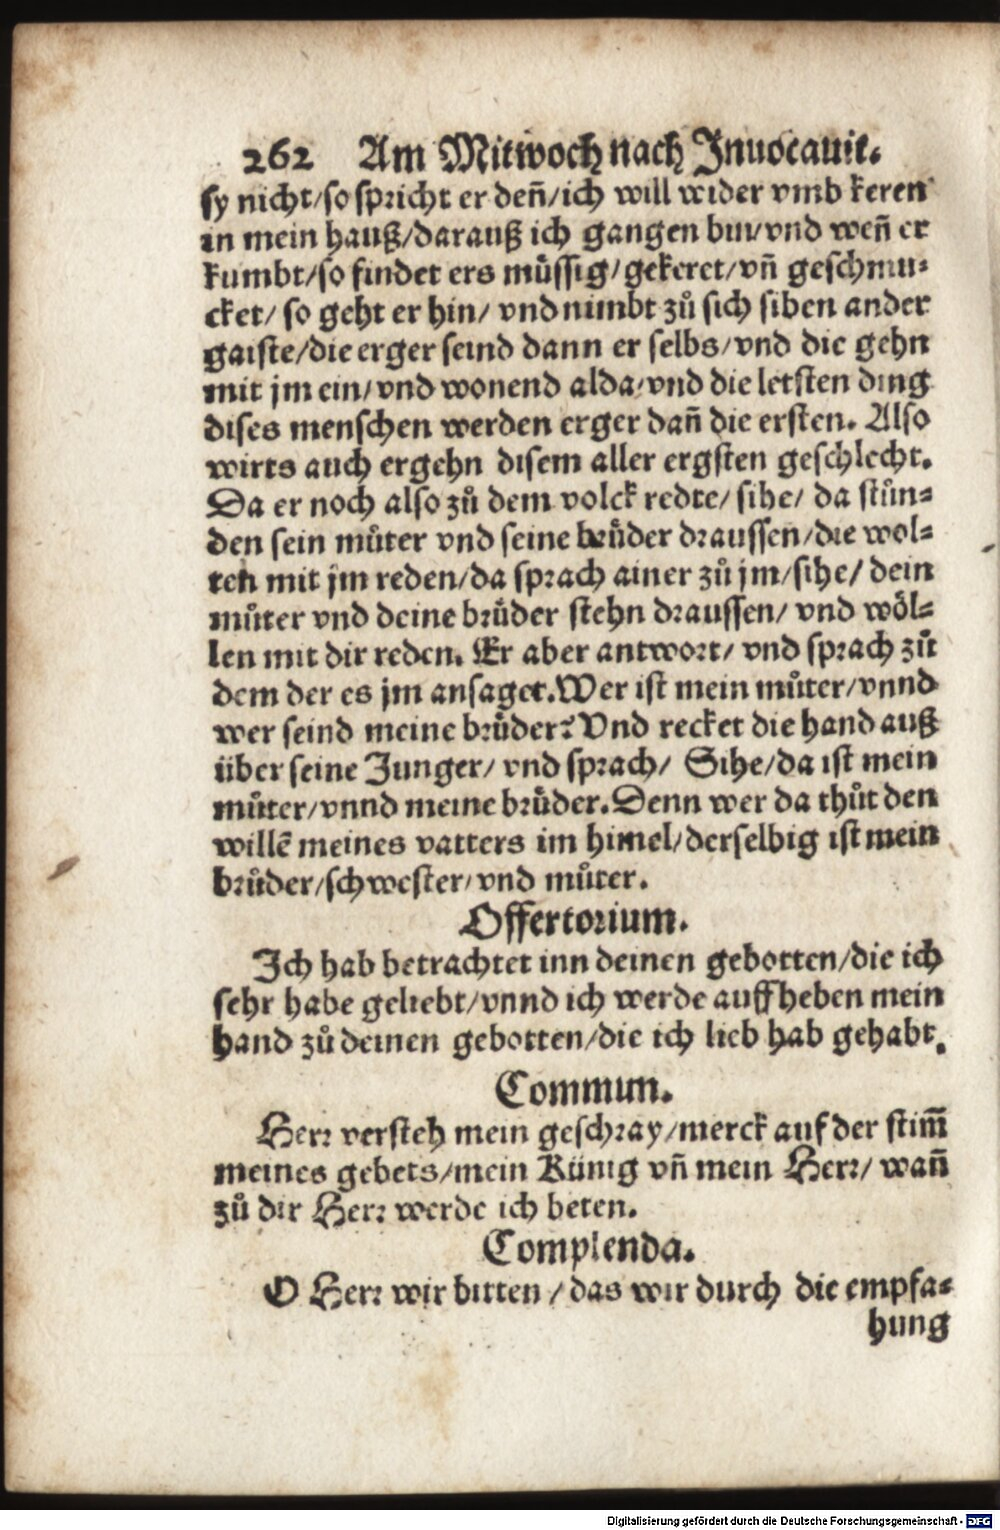 262 Am Mitwoch nach Inuocauit.
sy nicht/so spricht er deñ/ich will wider vmb keren
in mein hauß/darauß ich gangen bin/vnd weñ er
kumbt/so findet ers müssig/gekeret/vñ geschmu-
cket/ so geht er hin/ vnd nimbt zů sich siben ander
gaiste/die erger seind dann er selbs/vnd die gehn
mit jm ein/vnd wonend alda/vnd die letsten ding
dises menschen werden erger dañ die ersten. Also
wirts auch ergehn disem aller ergsten geschlecht.
Da er noch also zů dem volck redte/ sihe/ da stůn-
den sein můter vnd seine brüder draussen/die wol-
ten mit jm reden/da sprach ainer zů jm/sihe/ dein
můter vnd deine brüder stehn draussen/ vnd wöl-
len mit dir reden. Er aber antwort/ vnd sprach zů
dem der es jm ansaget.Wer ist mein můter/vnnd
wer seind meine brüder? Vnd recket die hand auß
über seine Junger/ vnd sprach/ Sihe/da ist mein
můter/vnnd meine brüder.Denn wer da thůt den
willē meines vatters im himel/derselbig ist mein
brůder/schwester/vnd můter.
Offertorium.
Ich hab betrachtet inn deinen gebotten/die ich
sehr habe geliebt/vnnd ich werde auffheben mein
hand zů deinen gebotten/die ich lieb hab gehabt.
Commun.
Herr versteh mein geschray/merck auf der stim̃
meines gebets/mein Künig vñ mein Herr/ wañ
zů dir Herr werde ich beten.
Complenda.
O Herr wir bitten /das wir durch die empfa-
hung
Digitalisierung gefördert durch die Deutsche Forschungsgemeinschaft - DFG